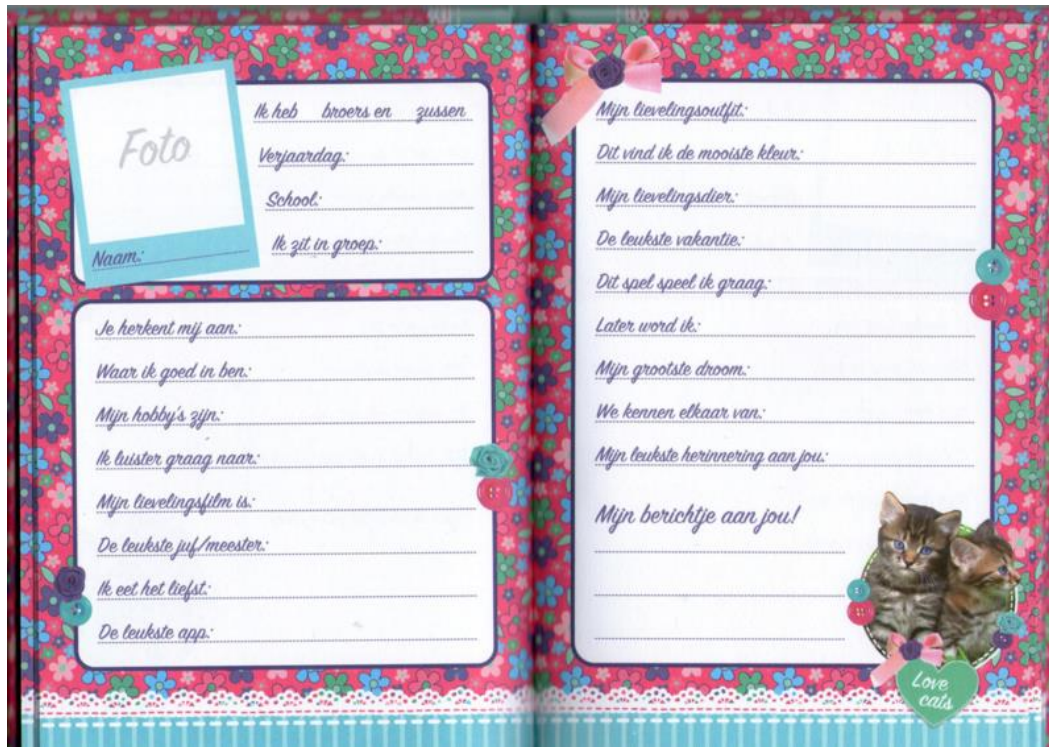 Foto
Naam:
Ik heb broers en zussen
Verjaardag:
School:
Ik zit in groep:
Je herkent mij aan:
Waar ik goed in ben:
Mijn hobby's zijn:
Ik luister graag naar:
Mijn lievelingsfilm is:
De leukste juf/meester:
Ik eet het liefst:
De leukste app:
Mijn lievelingsoutfit:
Dit vind ik de mooiste kleur:
Mijn lievelingsdier:
De leukste vakantie:
Dit spel speel ik graag:
Later word ik:
Mijn grootste droom:
We kennen elkaar van:
Mijn leukste herinnering aan jou:
Mijn berichtje aan jou!
Love
cats